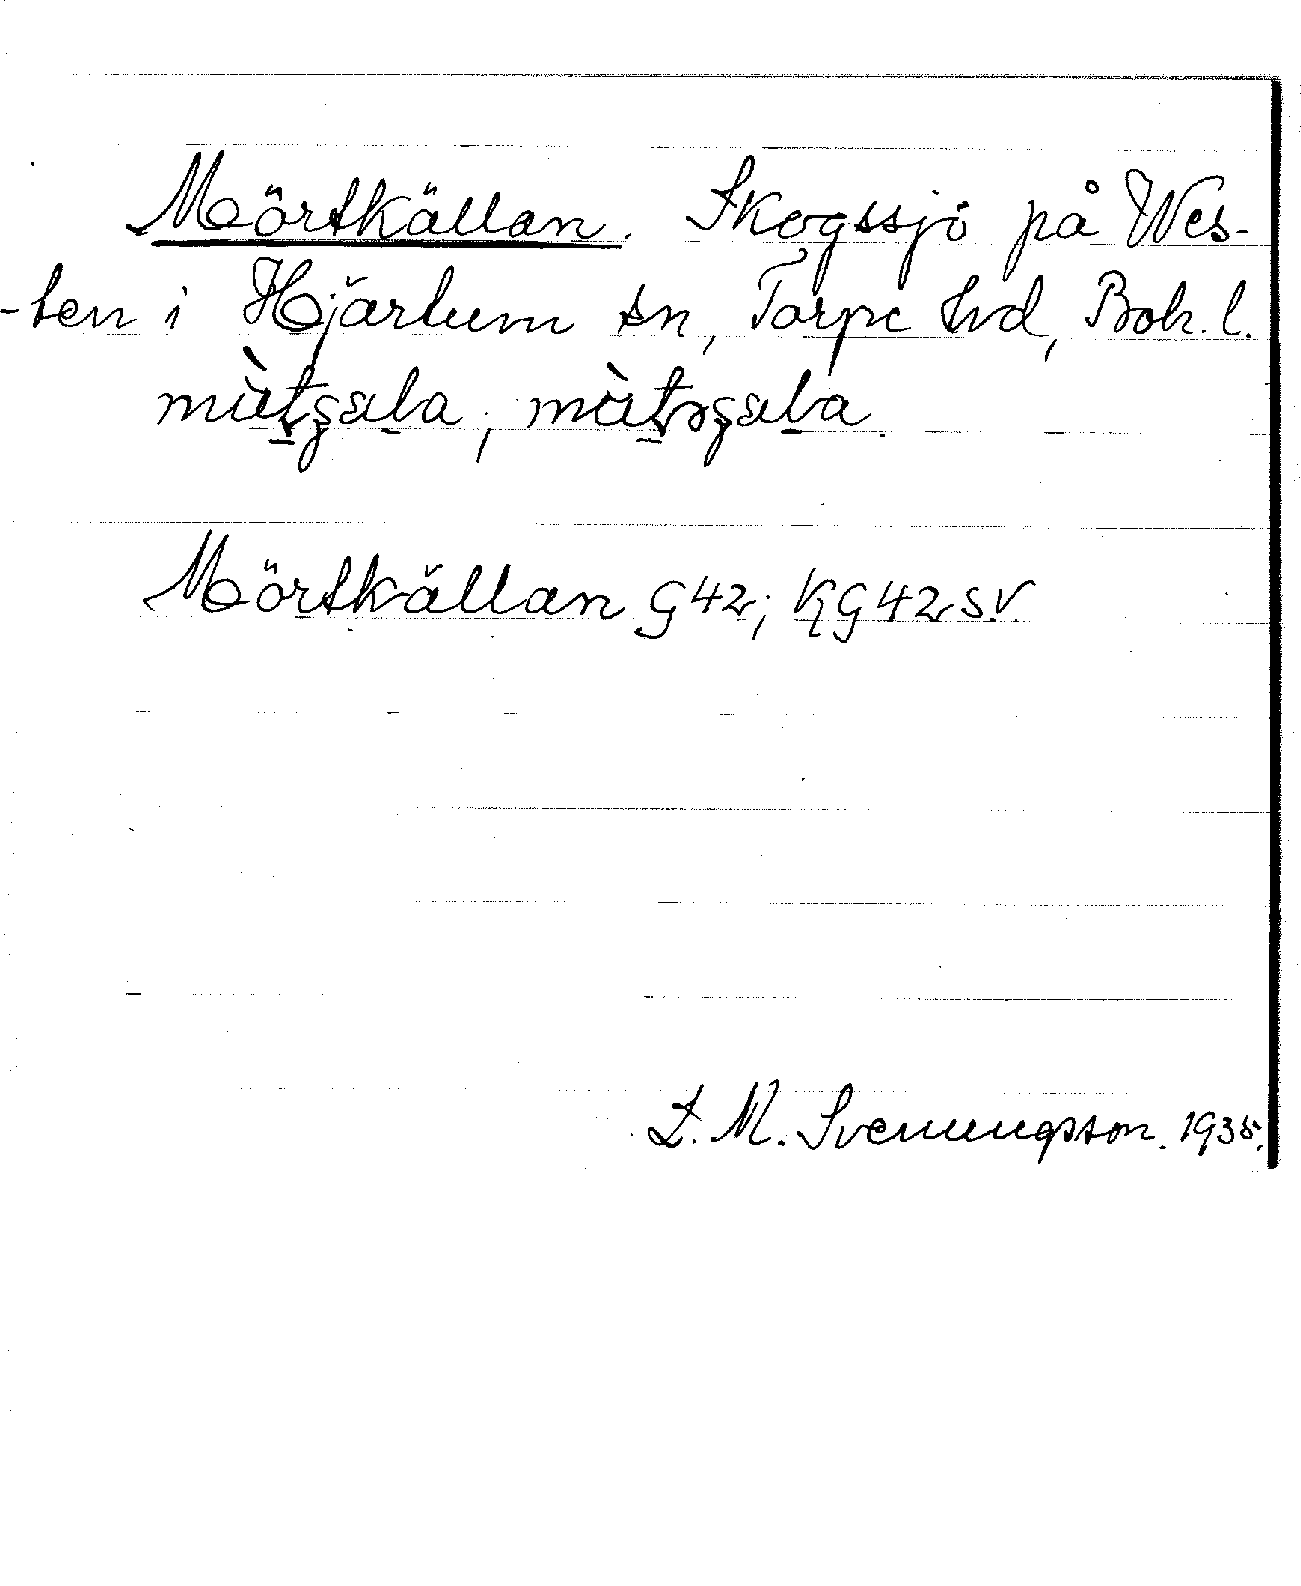 Mörtkällan. Skogssjö på Wes-
-ten i Hjärtum sn, Torpe hd, Boh. l.
Mörtkällan G42; KG42 S.V.
L. M. Svenungsson. 1935.